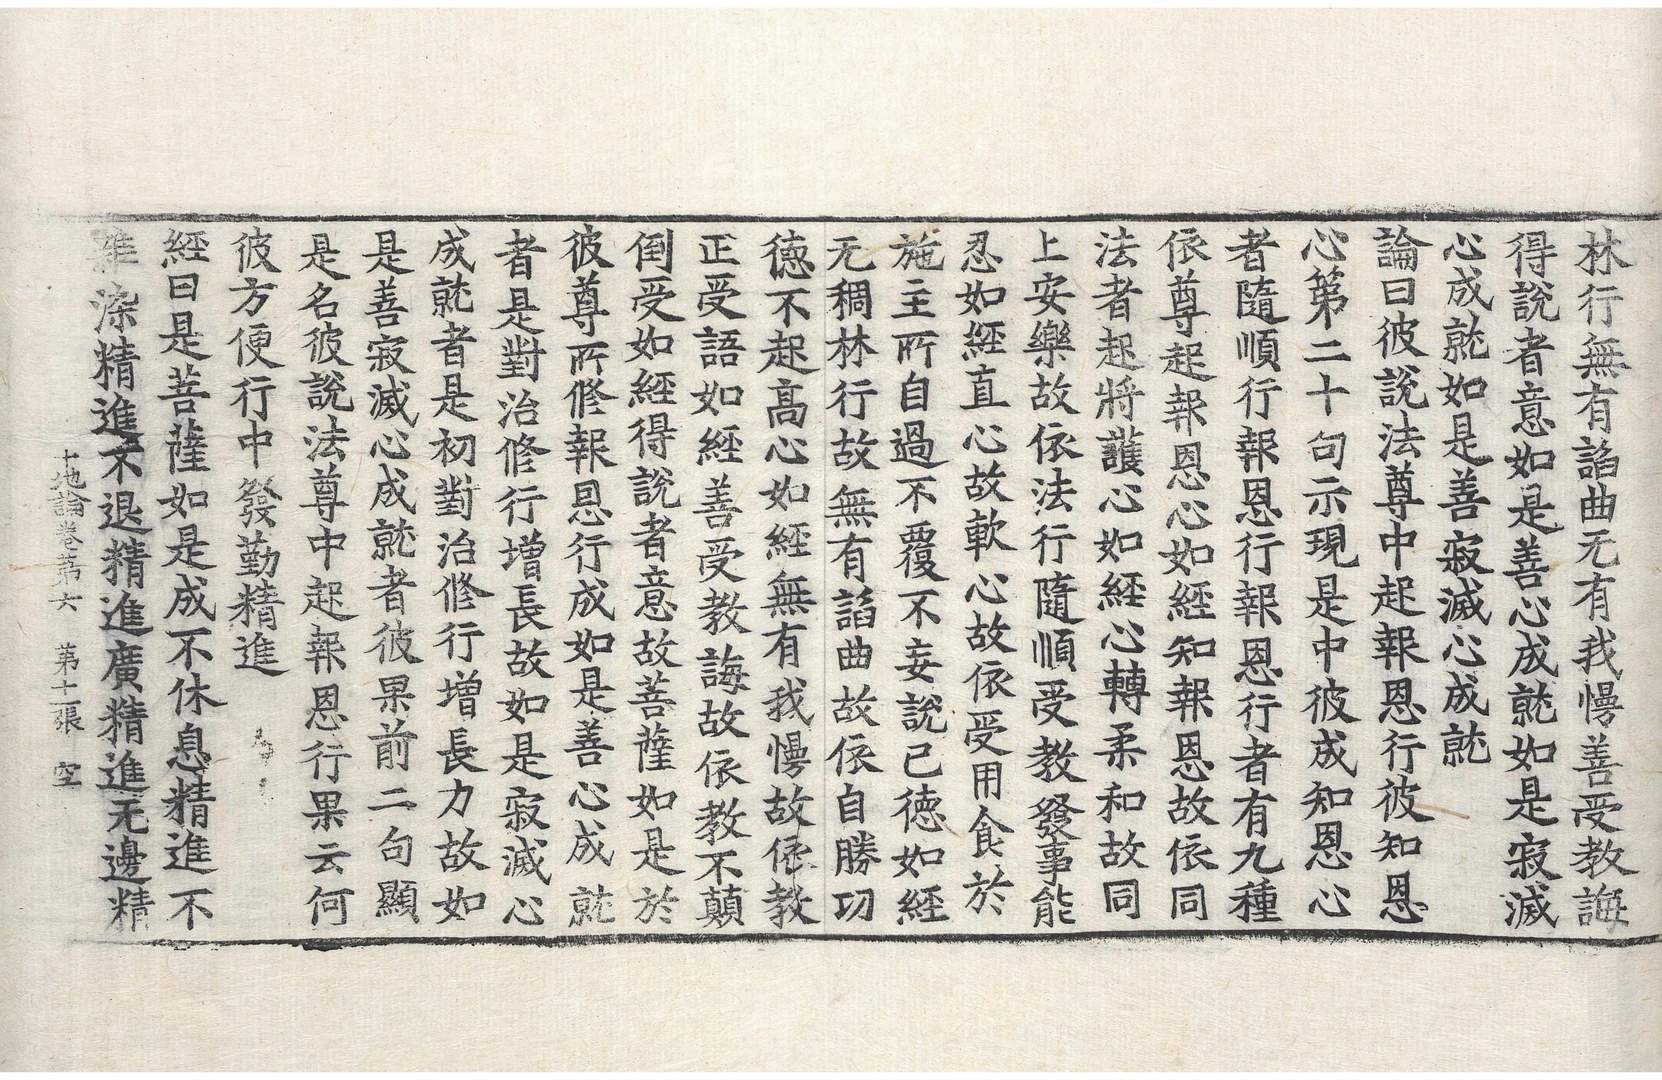 林行無有諂曲无有我慢善受教誨
得說者意如是善心成就如是寂滅
心成就如是善寂滅心成就
論曰彼說法尊中起報恩行彼知恩
心第二十句示現是中彼成知恩心
者隨順行報恩行報恩行者有九種
依尊起報恩心如經知報恩故依同
法者起將護心如經心轉柔和故同
上安樂故依法行隨順受教發事能
忍如經直心故軟心故依受用食於
施主所自過不覆不妄說己德如經
无稠林行故無有諂曲故依自勝功
德不起高心如經無有我慢故依教
正受語如經善受教誨故依教不顛
倒受如經得說者意故菩薩如是於
彼尊所修報恩行成如是善心成就
者是對治修行增長故如是寂滅心
成就者是初對治修行增長力故如
是善寂滅心成就者彼果前二句顯
是名彼說法尊中起報恩行果云何
彼方便行中發勤精進
經曰是菩薩如是成不休息精進不
雜染精進不退精進廣精進无邊精
十地論卷第六 第十一張 空